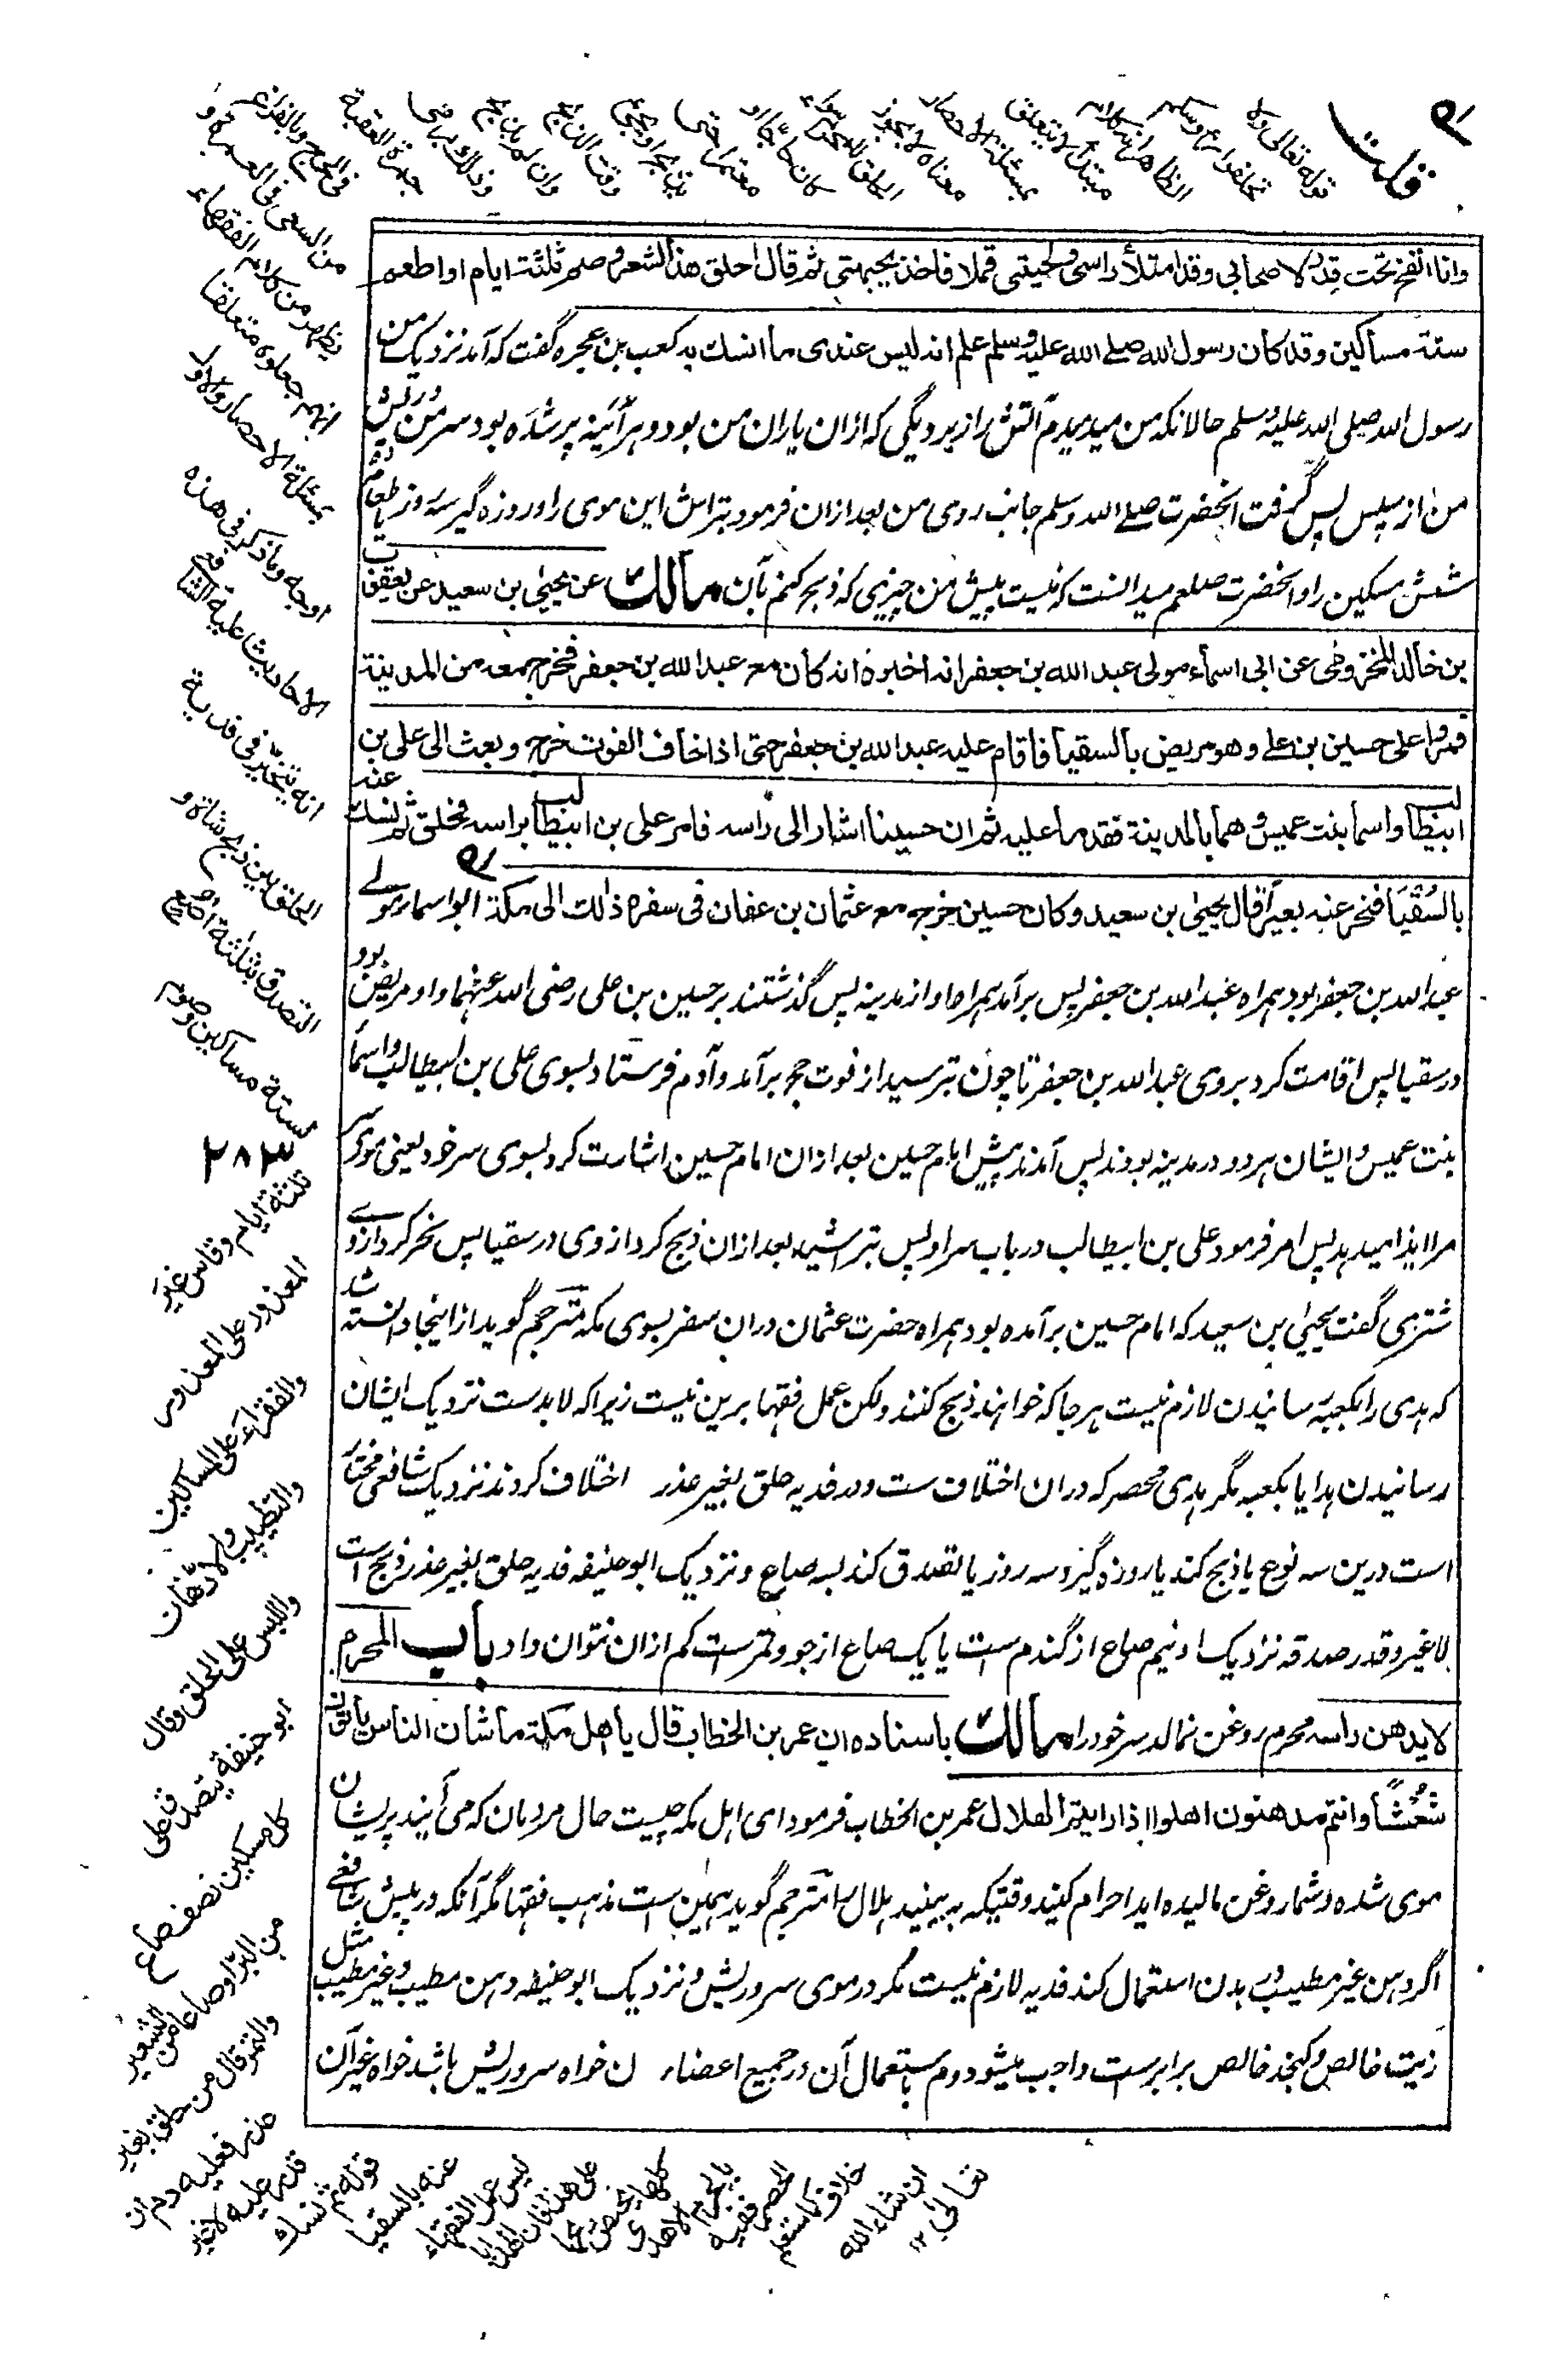 وانا انفخ تحت قدر لاصحابی وقد امتلأ راسی ولحیتی قملا فاخذ بجبهتی ثم قال احلق هذا الشعر وصم ثلثة ایام او اطعم
ستة مساکین وقد کان رسول الله صلے الله علیه وسلم علم انه لیس عندی ما انسك به کعب بن عجره گفت که آمد نزدیک من
رسول الله صلی الله علیه وسلم حالانکه من میدمیدم آتش را زیر دیگی که ازان یاران من بود و هر آئینه پر شده بود سر من و ریش
من از سپس پس گرفت آنحضرت صلے الله وسلم جانب روی من بعد ازان فرمود بتراش این موی را و روزه گیر سه روز یا طعام ده
شش مسکین را و آنحضرت صلعم میدانست که نیست پیش من چیزی که ذبح کنم بآن مالك عن یحیی بن سعید عن یعقوب
بن خالد المخزومی عن ابی اسماء مولی عبد الله بن جعفر انه اخبره انه کان مع عبد الله بن جعفر فخرج معه من المدینة
فمروا علی حسین بن علے وهو مریض بالسقیا فاقام علیه عبد الله بن جعفر حتی اذا خاف الفوت خرج وبعث الی علی بن
ابیطالب واسما بنت عمیس وهما بالمدینة فقدما علیه ثم ان حسینا اشار الی راسه فامر علی بن ابیطالب براسه فحلق ثم نسك عنه
بالسقیا فنحر عنه بعیرا قال یحیی بن سعید وکان حسین خرج مع عثمان بن عفان فی سفره ذلك الی مکة ابو اسماء مولے
عبد الله بن جعفر بود همراه عبد الله بن جعفر پس برآمد همراه او از مدینه پس گذشتند بر حسین بن علی رضی الله عنهما و او مریض بود
در سقیا پس اقامت کرد بروی عبد الله بن جعفر تا چون بترسید از فوت حج برآمد و آدم فرستاد بسوی علی بن ابیطالب و اسما
بنت عمیس و ایشان هر دو در مدینه بودند پس آمدند پیش امام حسین بعد ازان امام حسین اشارت کرد بسوی سر خود یعنی موی سر
مرا ایذا میدهد پس امر فرمود علی بن ابیطالب در باب سر او پس تراشید بعد ازان ذبح کرد از وی در سقیا پس نحر کرد از وے
شتری گفت یحیی بن سعید که امام حسین برآمده بود همراه حضرت عثمان دران سفر بسوی مکه مترجم گوید از اینجا دانسته شد
که هدی را بکعبه رسانیدن لازم نیست هر جا که خواهند ذبح کنند ولکن عمل فقها برین نیست زیرا که لابدست نزدیک ایشان
رسانیدن هدایا بکعبه مگر هدی محصر که دران اختلاف ست و در فدیه حلق بغیر عذر اختلاف کردند نزدیک شافعی مخیر
است درین سه نوع یا ذبح کند یا روزه گیرد سه روز یا تصدق کند بسه صاع و نزدیک ابو حنیفه فدیه حلق بغیر عذر ذبح است
لا غیر و قدر صدقه نزدیک او نیم صاع از گندم ست یا یک صاع از جو و تمرست کم ازان نتوان داد باب المحرم
لا یدهن راسه محرم روغن نمالد سر خود را مالك باسناده ان عمر بن الخطاب قال یا اهل مکة ما شان الناس یاتون
شعثا وانتم مدهنون اهلوا اذا رایتم الهلال عمر بن الخطاب فرمود ای اهل مکه چیست حال مردمان که می آیند پریشان
موی شده و شما روغن مالیده اید احرام کنید وقتیکه به بینید هلال را مترجم گوید همین ست مذهب فقها مگر آنکه در پیش شافعے
اگر دهن غیر مطیب در بدن استعمال کند فدیه لازم نیست مگر در موی سر و ریش و نزدیک ابو حنیفه دهن مطیب و غیر مطیب مثل
زیت خالص و کنجد خالص برابرست واجب میشود دم باستعمال آن در جمیع اعضاء ن خواه سر و ریش باشد خواه غیر آن
قلت
قوله تعالی ولا
تحلقوا رءوسکم
الظاهر انه کلام
مبتدأ لا یتعلق
بمسئلة الاحصار
معناه لا یجوز
الحلق للمحرم سواء
کان حاجا او
معتمرا حتی
وقت الذبح
وان لم یذبح
وذلك برمی
جمرة العقبة
فی الحج وبالفراغ
من السعی فی العمرة و
یظهر من کلام الفقهاء
انهم جعلوه متعلقا
بمسئلة الاحصار والاول
اوجه وما ذکر فی هذه
الاحادیث علیه الشافعی
انه یتخیر فی فدیة
الحلق بین ذبح شاة و
التصدق بثلثة اصع
لستة مساکین وصوم
۲۸۳
ثلثة ایام وقاس غیر
المعذور علی المعذور
والفقراء علی المساکین
والتطیب والادهان
واللبس علی الحلق وقال
ابو حنیفة یتصدق علی
کل مسکین نصف صاع
من البر او صاعا من الشعیر
والتمر وقال من حلق بغیر
عذر فعلیه دم ان
قدر علیه لا غیر
قوله ثم نسك
عنه بالسقیا
لیس عمل الفقهاء
علی هذا فان الهدایا
کلها یختص ذبحها
بالحرم الا هدی
المحصر ففیه
خلاف کما ستعلم
ان شاء الله
تعالی ۱۲